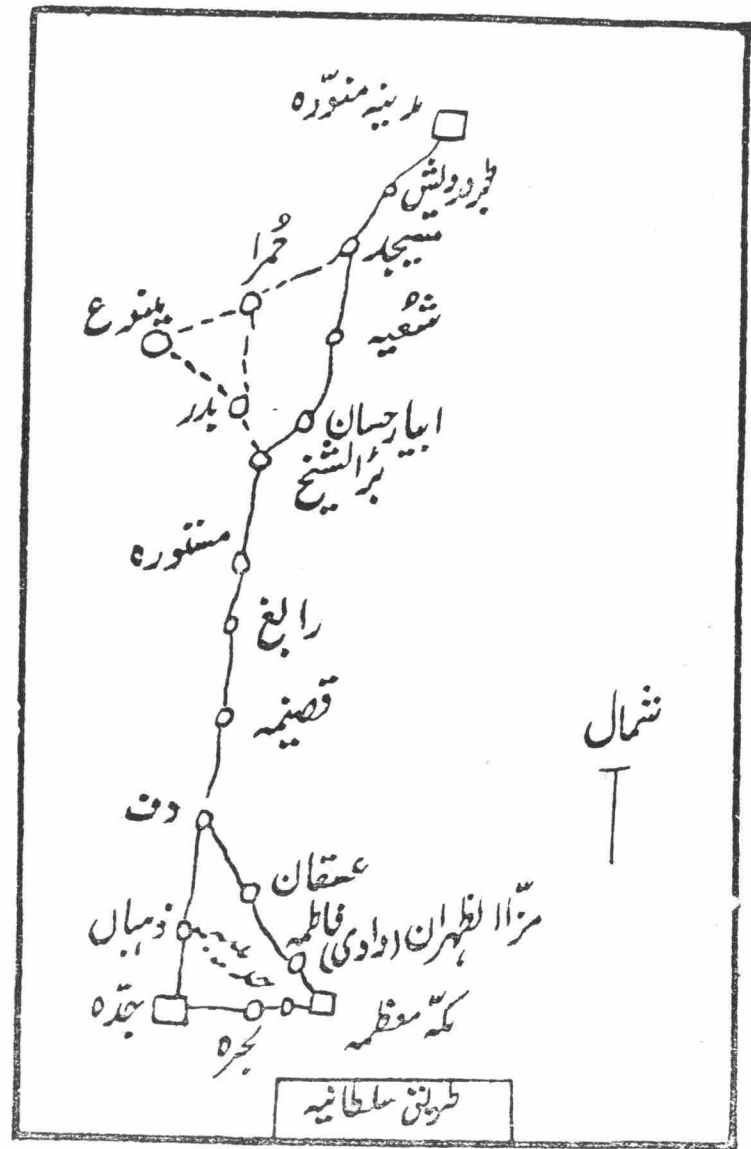 مدینہ منوّرہ
بئر درویش
مسیجد
حُمرا
ینبوع
شُعیہ
بدر
ابیار حسان
بئر الشیخ
مستورہ
رابغ
قصیمہ
شمال
دف
عسقان
مرّ الظہران (وادی) فاطمہ
ذہبان
حدیبیہ
جدّہ
بحرہ
مکّہ معظمہ
طریق سلطانیہ